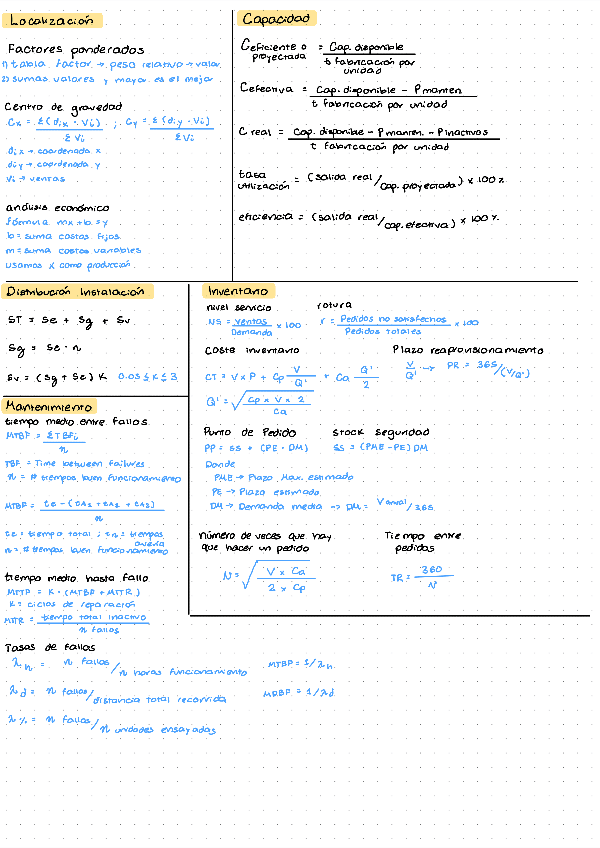 Localización
Factores ponderados
1) tabla factor → peso relativo → valor
2) sumas valores y mayor es el mejor
Centro de gravedad
Cx = Σ(dix · Vi) / ΣVi ; Cy = Σ(diy · Vi) / ΣVi
dix → coordenada x
diy → coordenada y
Vi → ventas
análisis económico
fórmula mx+b=y
b = suma costos fijos
m = suma costos variables
usamos x como producción
Capacidad
Ceficiente o proyectada = Cap. disponible / t fabricación por unidad
Cefectiva = Cap. disponible - P manten. / t fabricación por unidad
C real = Cap. disponible - P manten. - P inactivos / t fabricación por unidad
tasa utilización = (salida real / cap. proyectada) x 100 %
eficiencia = (salida real / cap. efectiva) x 100 %
Distribución Instalación
ST = Se + Sg + Sv
Sg = Se · n
Sv = (Sg + Se) K 0.05 ≤ K ≤ 3
Mantenimiento
tiempo medio entre fallos
MTBF = ΣTBFi / n
TBF = Time between failures
n = # tiempos buen funcionamiento
MTBF = te - (tA1 + tA2 + tA3) / n
te = tiempo total ; tn = tiempos avería
n = # tiempos buen funcionamiento
tiempo medio hasta fallo
MTTF = K · (MTBF + MTTR)
K = ciclos de reparación
MTTR = tiempo total inactivo / n fallos
Tasas de fallos
λn = n fallos / n horas funcionamiento MTBF = 1/λn
λd = n fallos / distancia total recorrida MDBF = 1/λd
λ% = n fallos / n unidades ensayadas
Inventario
nivel servicio rotura
NS = ventas / Demanda x 100 r = Pedidos no satisfechos / Pedidos totales x 100
Coste inventario Plazo reaprovisionamiento
CT = V x P + Cp V / Q' + Ca Q' / 2 V / Q' → PR = 365 / (V/Q')
Q' = √ Cp x V x 2 / Ca
Punto de Pedido Stock seguridad
PP = SS + (PE · DM) SS = (PME - PE) DM
Donde
PME → Plazo Max. estimado
PE → Plazo estimado
DM → Demanda media → DM = V anual / 365
número de veces que hay que hacer un pedido Tiempo entre pedidos
N = √ V x Ca / 2 x Cp TR = 360 / N